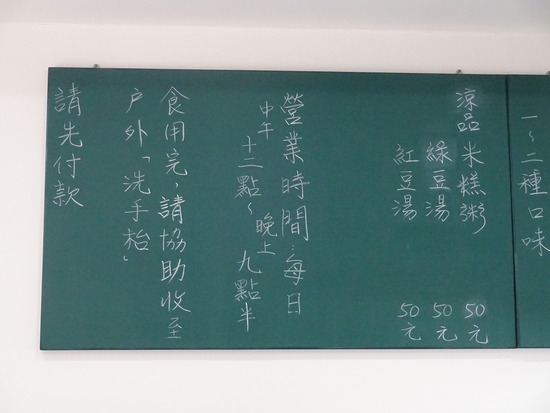 一~二種口味
涼品 米糕粥 50元
綠豆湯 50元
紅豆湯 50元
營業時間:每日
中午十二點~晚上九點半
食用完,請協助收至
戶外「洗手枱」
請先付款